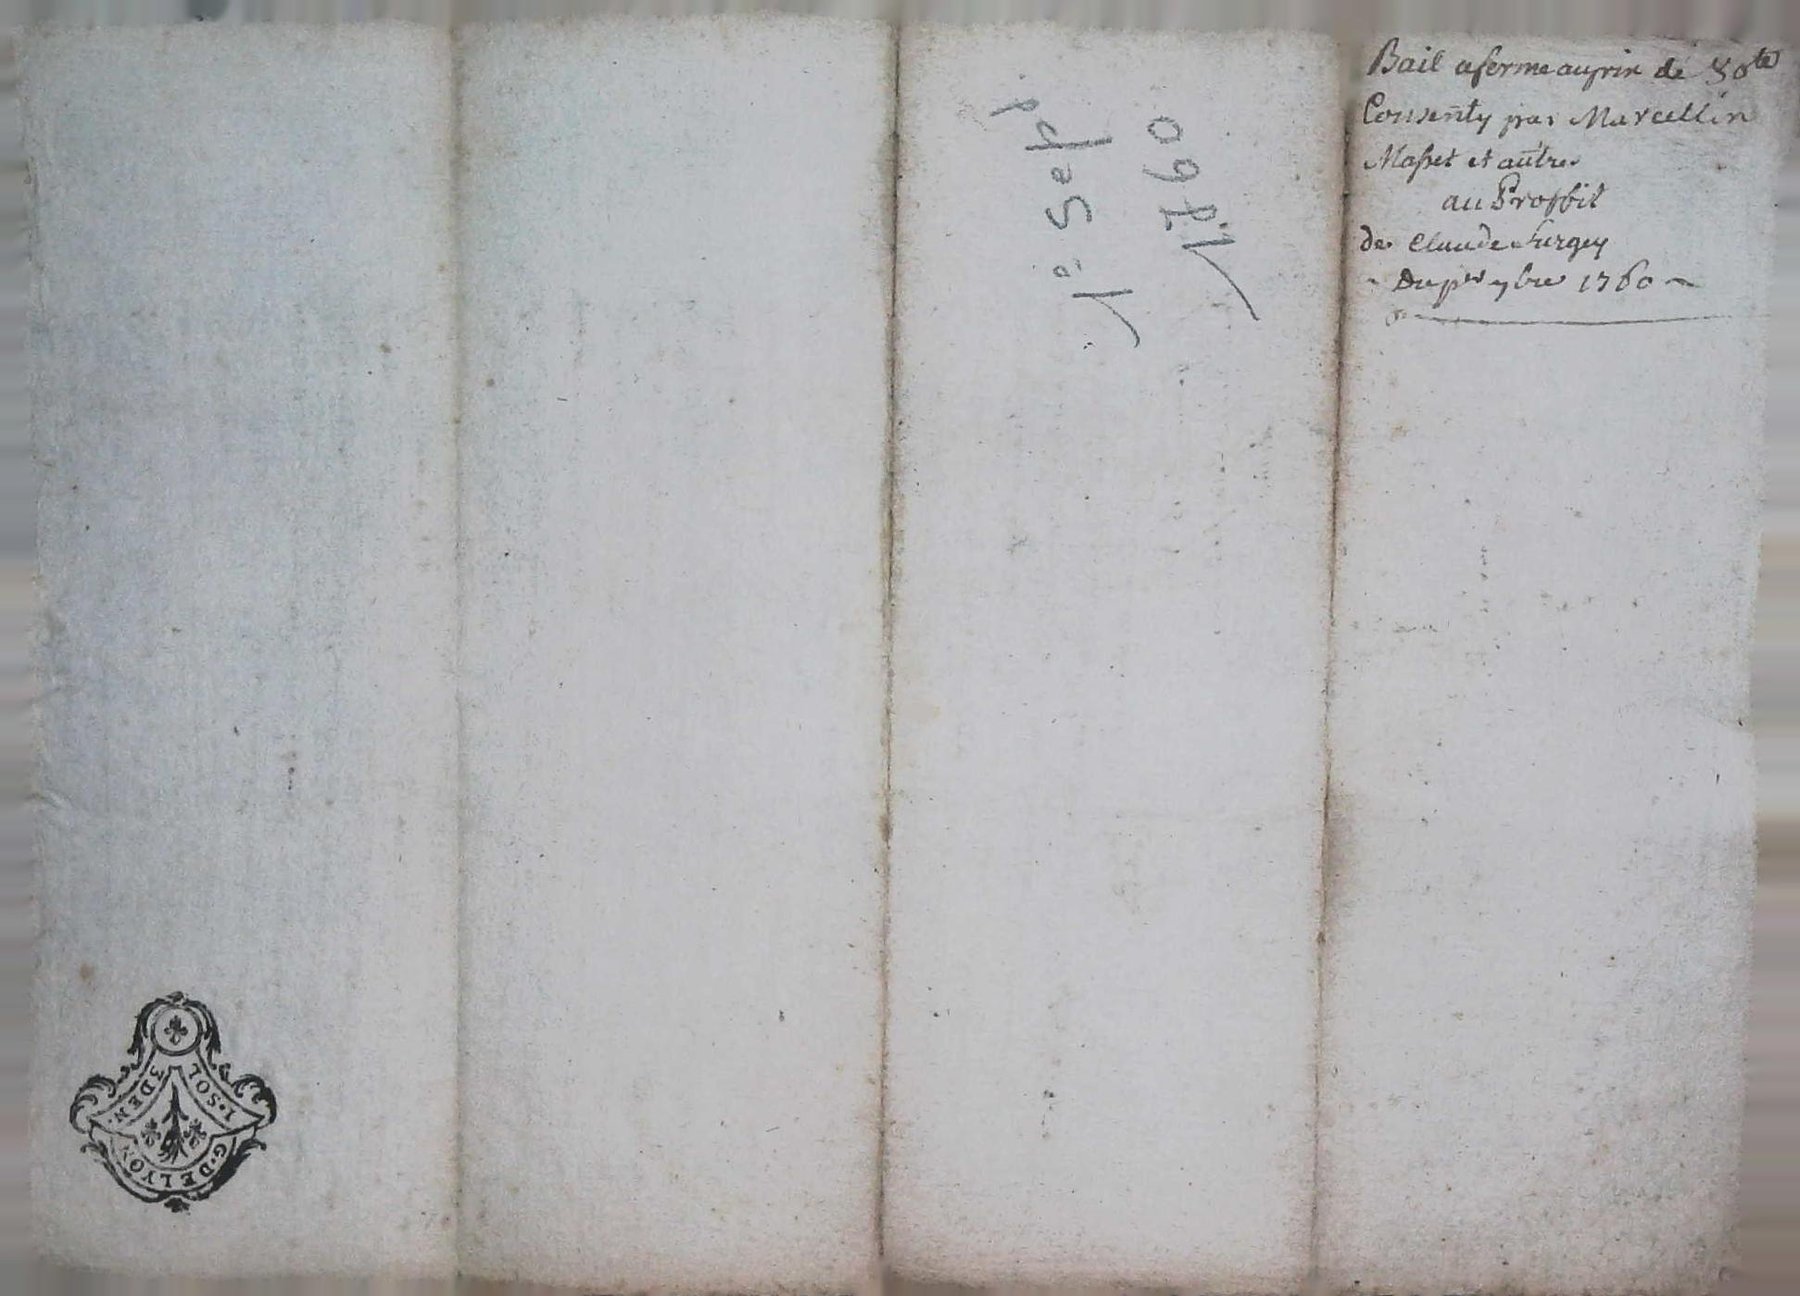 Bail aferme au prix de 50ᵗᵗ
Consenty par Marcellin
Masset et autres
au Proffit
de Claude
Du pᵉʳ 7bre 1760
1º Sepᵗ
1760
1·SOL
3DEN·
G·DELYON